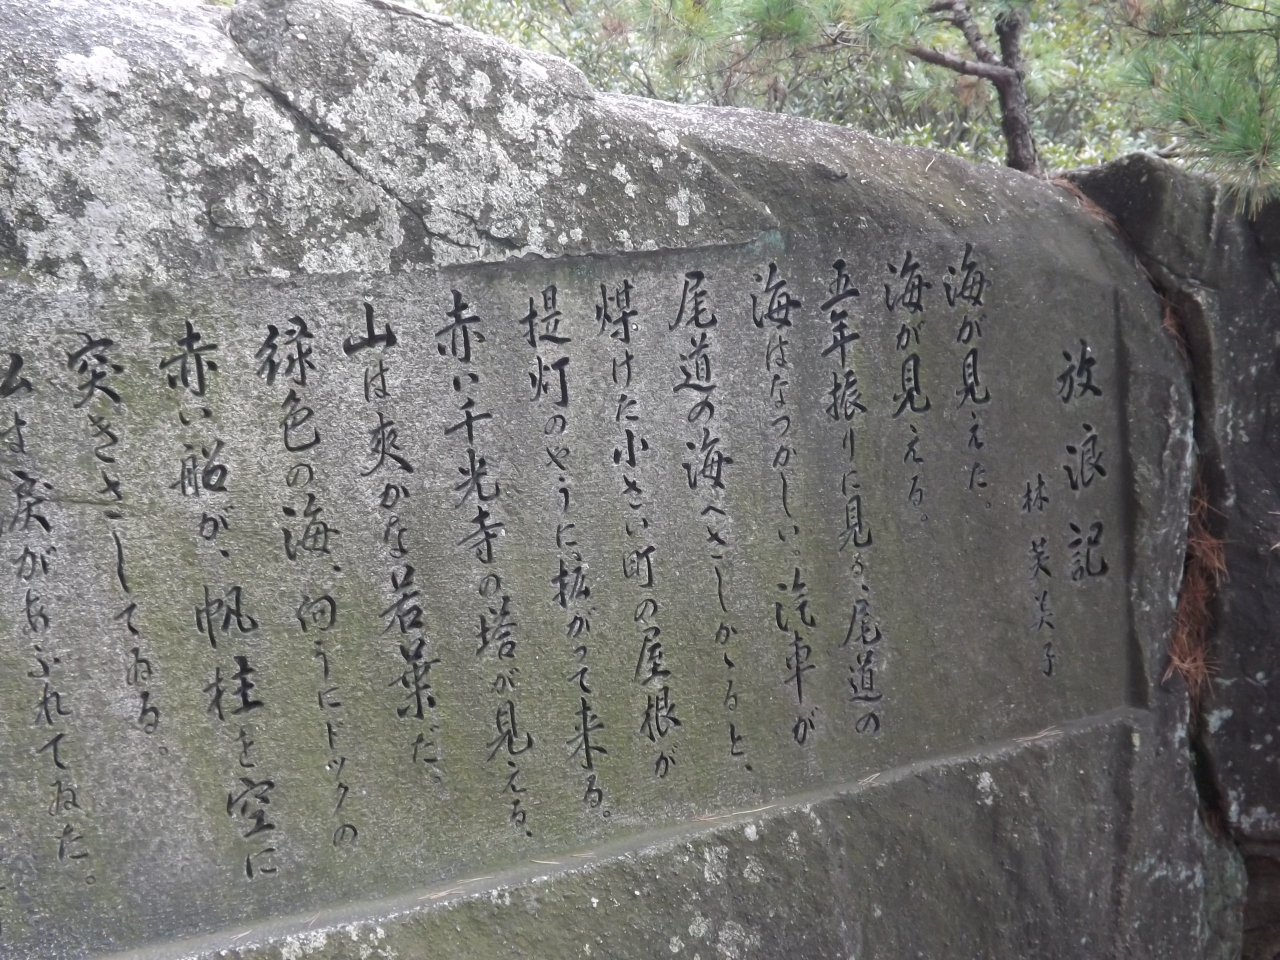 放浪記
林芙美子
海が見えた。
海が見える。
五年振りに見る、尾道の
海はなつかしい。汽車が
尾道の海へさしかゝると、
煤けた小さい町の屋根が
提灯のやうに、拡がつて来る。
赤い千光寺の塔が見える、
山は爽かな若葉だ、
緑色の海、向うにドツクの
赤い船が、帆柱を空に
突きさしてゐる。
私は涙があふれてゐた。